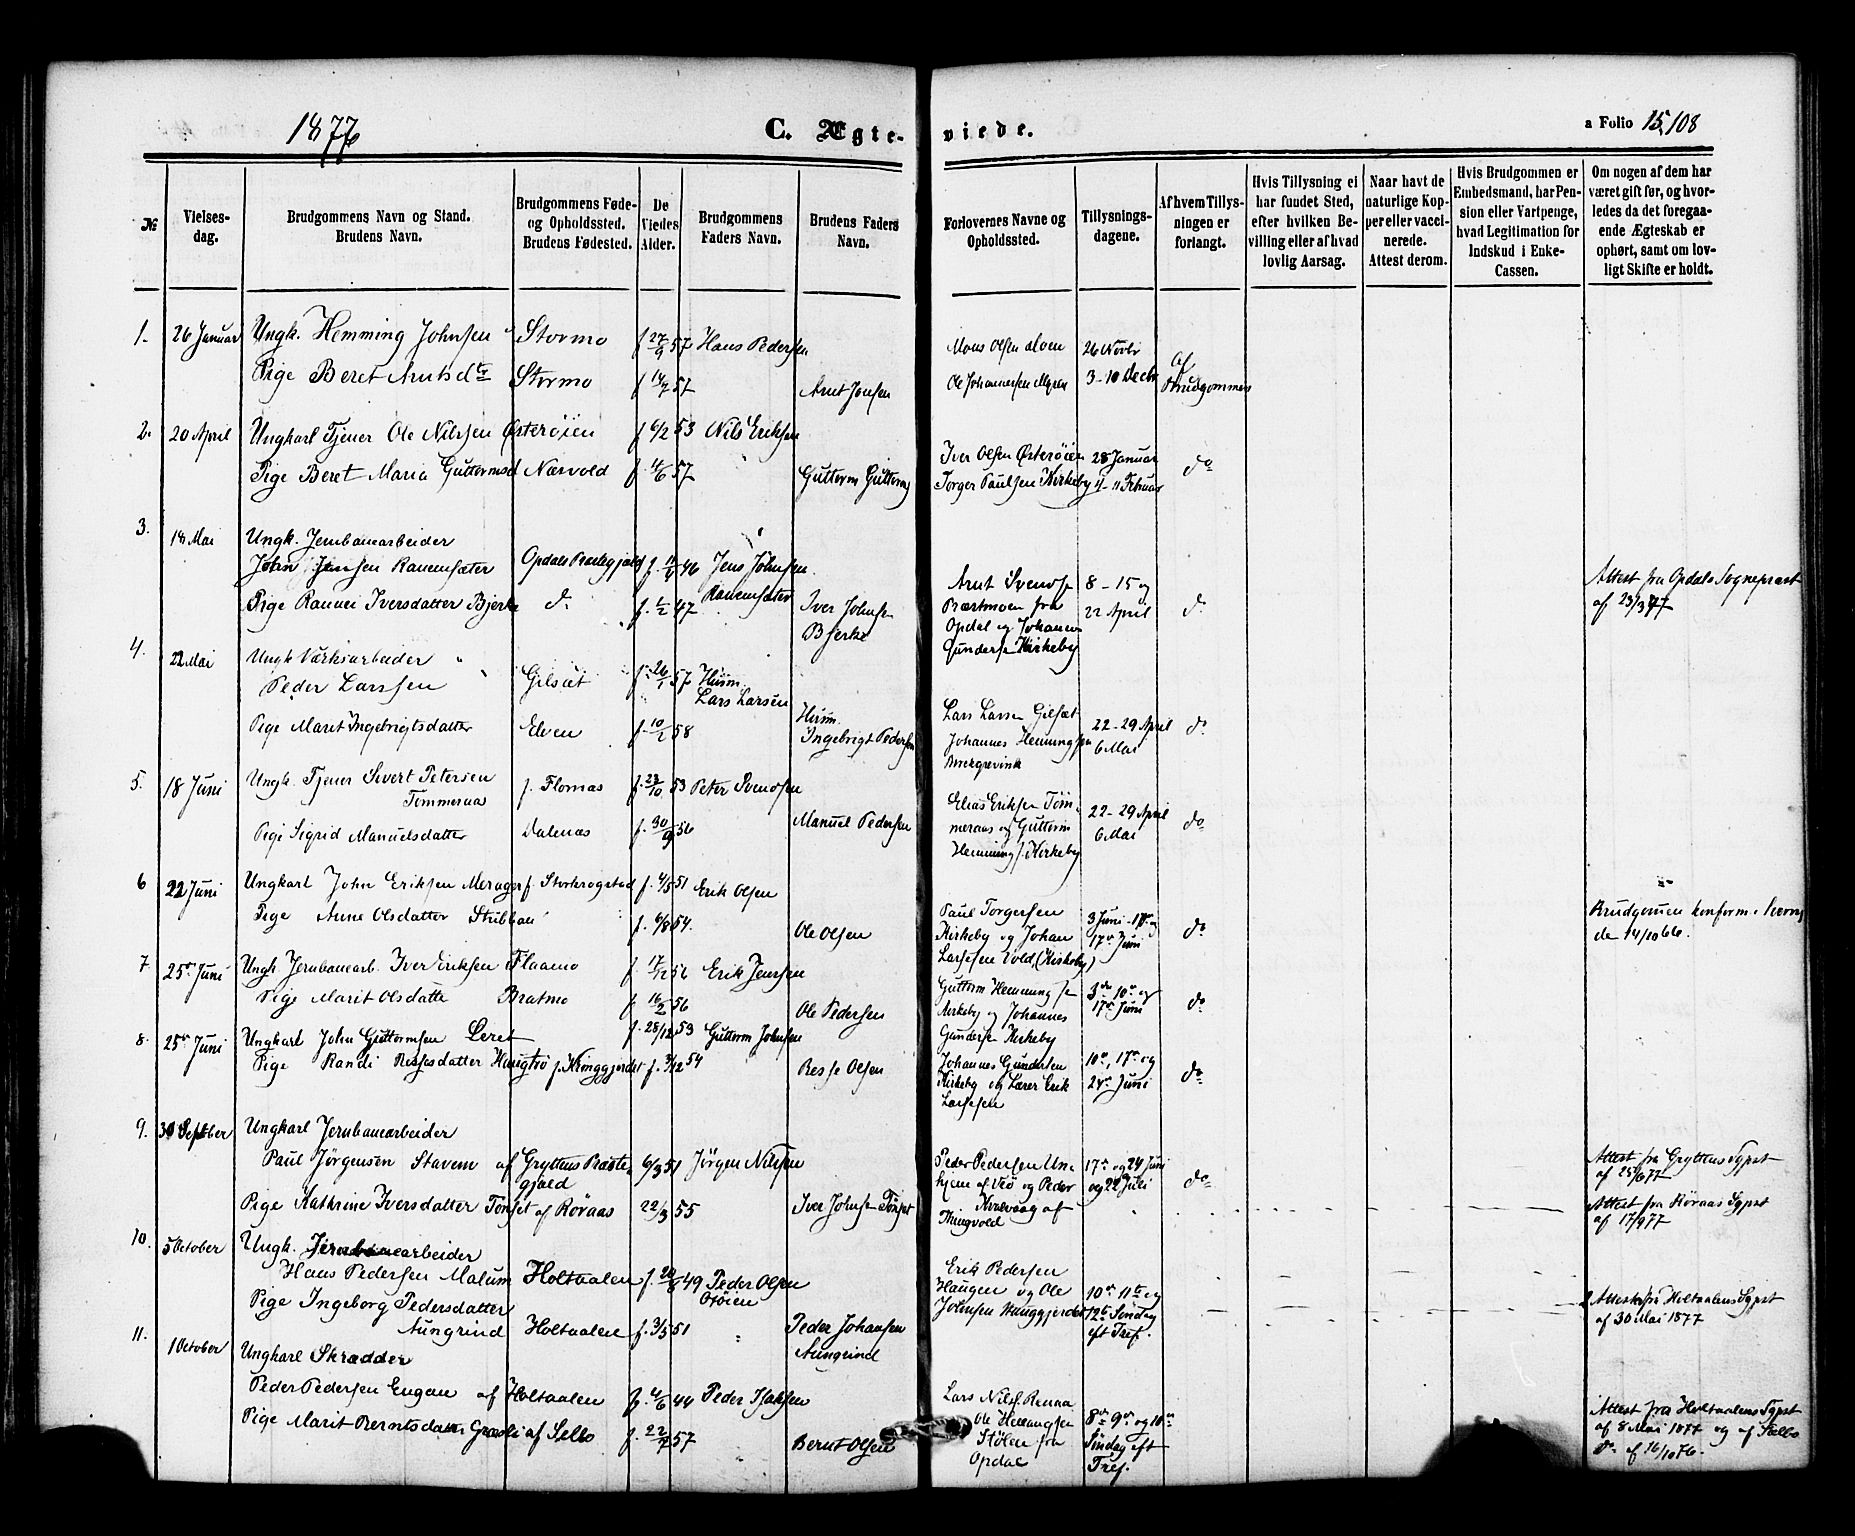 1877
C. Ægte-
viede.
a Folio 15. 108
№
Vielses-
dag.
Brudgommens Navn og Stand.
Brudens Navn.
Brudgommens Føde-
og Opholdssted.
Brudens Fødested.
De
Viedes
Alder.
Brudgommens
Faders Navn.
Brudens Faders
Navn.
Forlovernes Navne og
Opholdssted.
Tillysnings-
dagene.
Af hvem Tillys-
ningen er
forlangt.
Hvis Tillysning ei
har fundet Sted,
efter hvilken Be-
villing eller af hvad
lovlig Aarsag.
Naar havt de
naturlige Kop-
per eller vacci-
nerede.
Attest derom.
Hvis Brudgommen er
Embedsmand, har Pen-
sion eller Vartpenge,
hvad Legitimation for
Indskud i Enke-
Cassen.
Om nogen af dem har
været gift før, og hvor-
ledes da det foregaa-
ende Ægteskab er
ophørt, samt om lov-
ligt Skifte er holdt.
1. 26 Januar Ungk. Hemming Johnsen Stormo f. 27/9 57 Hans Pedersen
Pige Beret Arntsdtr Stormo f. 14/7 57 Arnt Jonsen
Mons Olsen Moen 26 Novbr
Ole Johannesen Myren 3-10 Decbr
af
Brudgommen
2. 20 April Ungkarl Tjener Ole Nilssen Østerøien f. 6/2 53 Nils Eriksen
Pige Beret Maria Guttormsd Nærvold f. 11/6 57 Guttorm Guttorms
Iver Olsen Østerøien 28 Januar
Torger Paulsen Kirkeby 4-11 Februar do
3. 18 Mai Ungk. Jernbanearbeider
John Jensen Ranemsæter Opdals Præstegjeld f. 11/4 46 Jens Johnsen
Ranemsæter
Pige Rannei Iversdatter Bjerke do f. 1/2 47 Iver Johnsen
Bjerke
Arnt Svends. 8-15 og
Bærtmoen fra 22 April do
Opdal og Johannes
Gunders. Kirkeby
Attest fra Opdals Sognepræst
af 23/3 77
4. 22 Mai Ungk Værksarbeider
Peder Larssen Gilsæt f. 26/1 57 Husm.
Lars Larsen
Pige Marit Ingebrigtsdatter Elven f. 10/2 58 Husm.
Ingebrigt Pedersen
Lars Larsen Gilsæt 22-29 April do
Johannes Hemmingsen 6 Mai
5. 18 Juni Ungk. Tjener Sivert Petersen f. Flornæs f. 23/10 53 Peter Svendsen
Tømmeraas
Pige Sigrid Manuelsdatter Dalenæs f. 30/9 56 Manuel Pedersen
Elias Eriksen Tøm-
meraas og Guttorm 22-29 April
Hemmings. Kirkeby 6 Mai do
6 22 Juni Ungkarl John Eriksen Merager f. Storkrogstad f. 4/5 51 Erik Olsen
Pige Anne Olsdatter f. 6/8 54. Ole Olsen
Paul Torgersen 3 Juni-10 og
Kirkeby og Johan 17de Juni do
Larsesen Vold, (Kirkeby)
Brudgommen konform.
de 14/10 66.
7. 25de Juni Ungk. Jernbanearb. Iver Eriksen Flaamo f. 17/12 56 Erik Jenssen
Pige Marit Olsdatter Bratmo f. 16/2 56 Ole Pedersen
Guttorm Hemmings. 3de 10de og
Kirkeby og Johannes 17de Juni do
Gunders. Kirkeby
8. 25de Juni Ungkarl John Guttormsen Leret f. 28/12 53 Guttorm Johnsen
Pige Randi Ressesdatter f. Kringgjerdet f. 3/12 54 Resse Olsen
Johannes Gundersen 10de, 17de og
Kirkeby og Lærer Erik 24de Juni do
Larsesen
9. 30 September Ungkarl Jernbanearbeider
Paul Jørgensen Stavem af Gryttens Præste- 6/3 51 Jörgen Nilssen
gjeld
Pige Kathrine Iversdatter Tønset af Röraas 22/3 55 Iver Johnsen Tönset
Peder Pedersen Un- 17de og 24 Juni
hjem af Veö og Peder og 22 Juli do
Kvalvaag af
Thingvold
Attest fra Gryttens Sgpst
af 25/6 77
Attest fra Röraas Sgpst
af 17/9 77
10. 5 October Ungk. Jernbanearbeider
Hans Pedersen Malum Holtaalen f. 20/8 49 Peder Olsen
Pige Ingeborg Pedersdatter
Aungrind Holtaalen f. 3/5 51 Peder Johansen
Aungrind
Erik Pedersen
Haugen og Ole 10de 11te og
Johnsen 12te Söndag
eft Tref.
2 Attester fra Holtaalens Sgpst
af 30 Mai 1877
11. 1 October Ungkarl Skrædder
Peder Pedersen Engan af Holtaalen f. 4/6 44 Peder Isaksen
Pige Marit Berntsdatter Græsli af Selbo f. 22/7 57 Bernt Olsen
Lars Nils. Renaa
Ole Hemmingsen 8de 9de og 10de
Stölen fra Söndag eft
Opdal Tref.
Attest fra Holtaalens Sgpst
af 8 Mai 1877 og af Sælbo
do af 16/10 76.